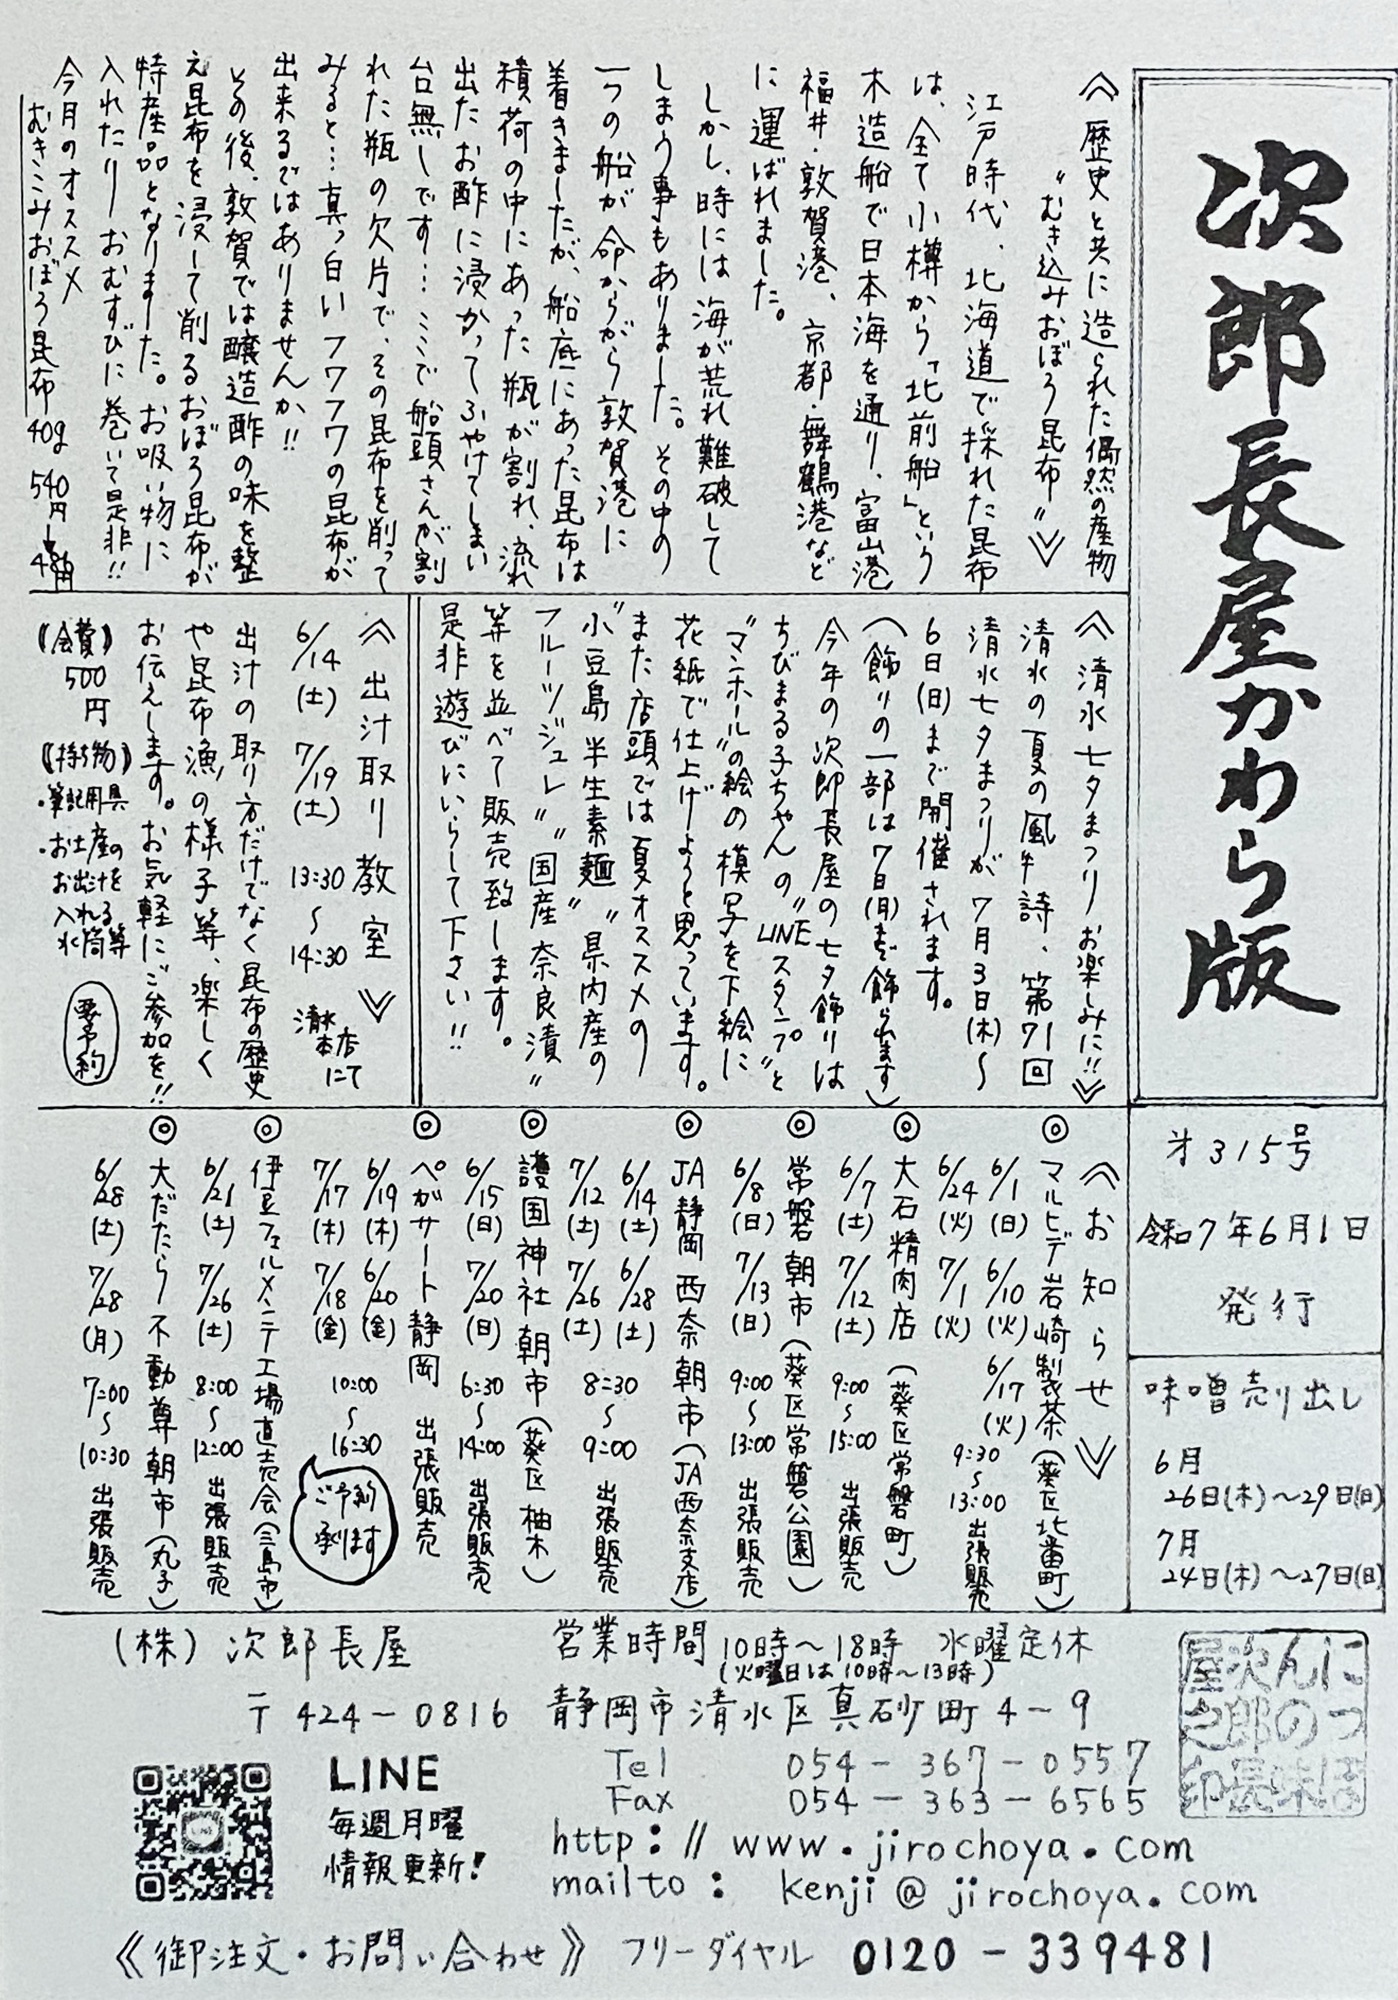 次郎長屋かわら版
才315号
令和7年6月1日
発行
味噌売り出し
6月
26日(木)〜29日(日)
7月
24日(木)〜27日(日)
《歴史と共に造られた偶然の産物
"むき込みおぼろ昆布"》
江戸時代、北海道で採れた昆布
は、全て小樽から「北前船」という
木造船で日本海を通り、富山港
福井・敦賀港、京都・舞鶴港など
に運ばれました。
しかし、時には海が荒れ難破して
しまう事もありました。その中の
一つの船が命からがら敦賀港に
着きましたが、船底にあった昆布は
積荷の中にあった瓶が割れ、流れ
出たお酢に浸かってふやけてしまい
台無しです…ここで船頭さんが割
れた瓶の欠片で、その昆布を削って
みると…真っ白いフワフワの昆布が
出来るではありませんか!!
その後、敦賀では醸造酢の味を整
え昆布を浸して削るおぼろ昆布が
特産品となりました。お吸い物に
入れたり、おむすびに巻いて是非!!
今月のオススメ
むきこみおぼろ昆布 40g 540円→486円
《清水七夕まつり お楽しみに!!》
清水の夏の風物詩、第71回
清水七夕まつりが7月3日(木)〜
6日(日)まで開催されます。
(飾りの一部は7日(月)まで飾られます)
今年の次郎長屋の七夕飾りは
ちびまる子ちゃんの"LINEスタンプ"と
"マンホール"の絵の模写を下絵に
花紙で仕上げようと思っています。
また店頭では夏オススメの
"小豆島半生素麺""県内産の
フルーツジュレ""国産奈良漬"
等を並べて販売致します。
是非遊びにいらして下さい!!
《出汁取り教室》
6/14(土) 7/19(土) 13:30〜14:30 清水本店にて
出汁の取り方だけでなく昆布の歴史
や昆布漁の様子等、楽しく
お伝えします。お気軽にご参加を!!
《会費》
500円
《持ち物》
・筆記用具
・お土産の
お出汁を
入れる
水筒等
要予約
《お知らせ》
◎マルヒデ岩崎製茶(葵区北番町)
6/1(日) 6/10(火) 6/17(火)
6/24(火) 7/1(火) 9:30〜13:00 出張販売
◎大石精肉店(葵区常磐町)
6/7(土) 7/12(土) 9:00〜15:00 出張販売
◎常磐朝市(葵区常磐公園)
6/8(日) 7/13(日) 9:00〜13:00 出張販売
◎JA静岡西奈朝市(JA西奈支店)
6/14(土) 6/28(土)
7/12(土) 7/26(土) 8:30〜9:00 出張販売
◎護国神社朝市(葵区柚木)
6/15(日) 7/20(日) 6:30〜14:00 出張販売
◎ペガサート静岡 出張販売
6/19(木) 6/20(金)
7/17(木) 7/18(金) 10:00〜16:30
ご予約
承ります
◎伊豆フェルメンテ工場直売会(三島市)
6/21(土) 7/26(土) 8:00〜12:00 出張販売
◎大だたら不動尊朝市(丸子)
6/28(土) 7/28(月) 7:00〜10:30 出張販売
(株)次郎長屋
営業時間 10時〜18時 水曜定休
(火曜日は10時〜13時)
〒424-0816 静岡市清水区真砂町4-9
Tel 054-367-0557
Fax 054-363-6565
http://www.jirochoya.com
mailto: kenji@jirochoya.com
LINE
毎週月曜
情報更新!
《御注文・お問い合わせ》 フリーダイヤル 0120-339481
にっぽ
んの味
次郎長
屋之印